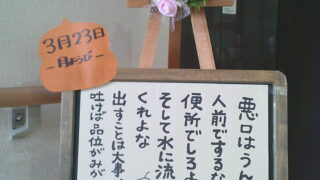 3月23日
－月ようび－
悪口はうん
人前でするな
便所でしろよ
そして水に流
くれよな
出すことは大事
吐けば品位がみが